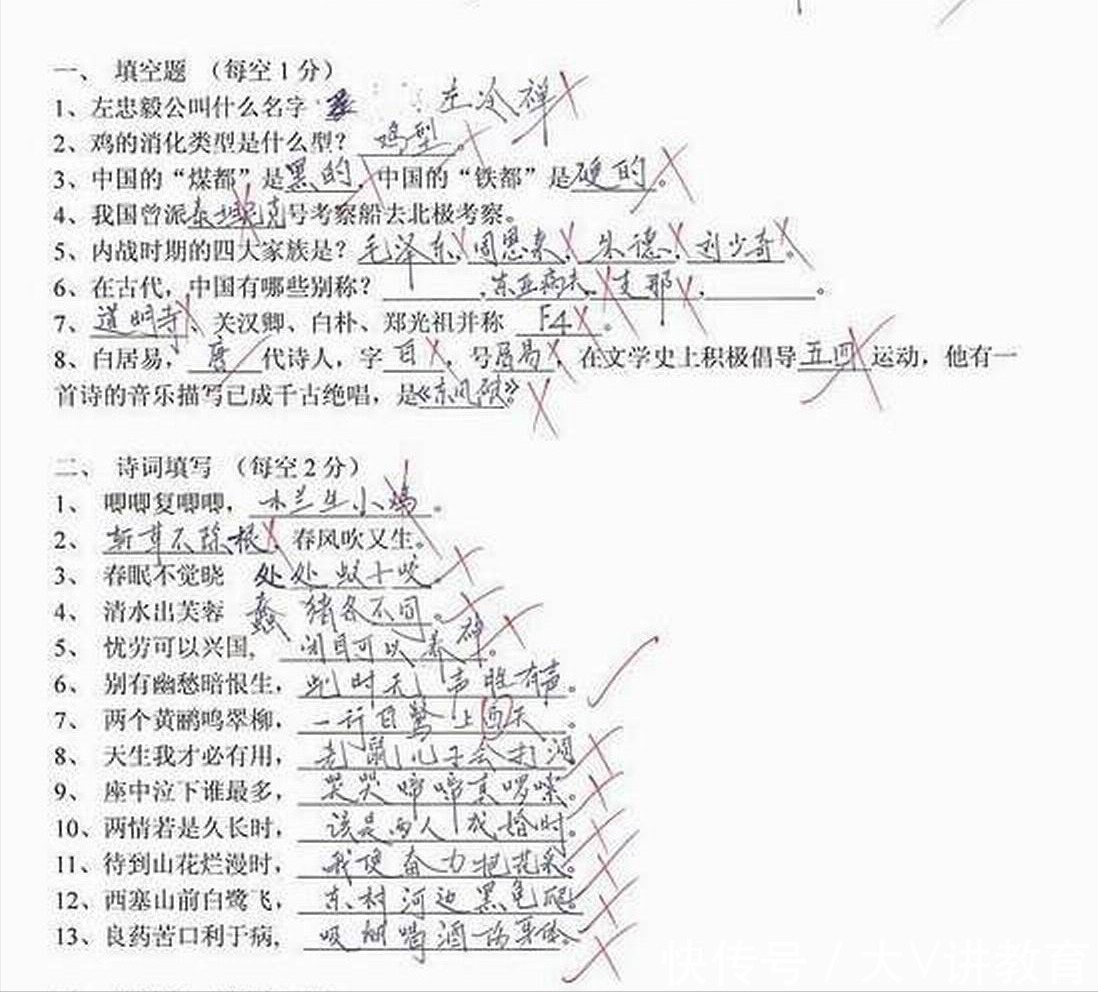 一、 填空题 （每空1分）
1、左忠毅公叫什么名字 左冷禅
2、鸡的消化类型是什么型？ 鸡型。
3、中国的“煤都”是黑的，中国的“铁都”是硬的。
4、我国曾派泰坦尼克号考察船去北极考察。
5、内战时期的四大家族是？毛泽东、周恩来、朱德、刘少奇。
6、在古代，中国有哪些别称？ ，东亚病夫、支那、 。
7、道明寺、关汉卿、白朴、郑光祖并称 F4 。
8、白居易， 唐 代诗人，字 白 ，号居易，在文学史上积极倡导五四运动，他有一
首诗的音乐描写已成千古绝唱，是《东风破》。
二、 诗词填写 （每空2分）
1、 唧唧复唧唧， 木兰生小鸡 。
2、 斩草不除根 ，春风吹又生。
3、 春眠不觉晓 处处蚊子咬。
4、 清水出芙蓉 猪各不同。
5、 忧劳可以兴国， 闭目可以养神。
6、 别有幽愁暗恨生， 此时无声胜有声。
7、 两个黄鹂鸣翠柳， 一行白鹭上西天。
8、 天生我才必有用， 老鼠儿子会打洞
9、 座中泣下谁最多， 哭哭啼啼真啰嗦。
10、两情若是久长时， 该是两人成婚时。
11、待到山花烂漫时， 我便奋力把花采。
12、西塞山前白鹭飞， 东村河边黑龟爬。
13、良药苦口利于病， 吸烟喝酒伤身体。
快传号 / 大V讲教育